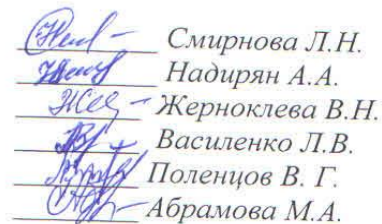 Смирнова Л.Н.
Надирян А.А.
Жерноклева В.Н.
Василенко Л.В.
Поленцов В. Г.
Абрамова М.А.